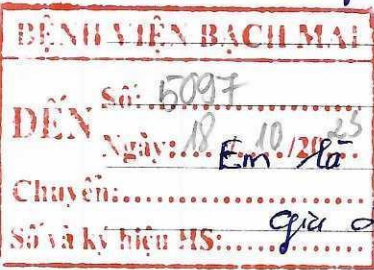 BỆNH VIỆN BẠCH MAI
Số: 5097
ĐẾN
Ngày: 18 / 10 /2023
Em là
Chuyển:
Số và ký hiệu HS: